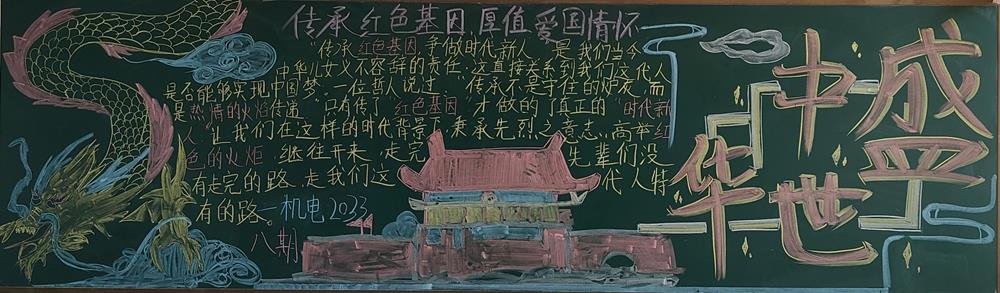 传承红色基因,厚值爱国情怀
“传承红色基因,争做时代新人”是我们当今
中华儿女义不容辞的责任,这直接关系到我们这代人
是否能够实现中国梦。一位哲人说过:“传承不是守住的炉灰,而
是热情的火焰传递”只有传了“红色基因”才做的了真正的“时代新
人”让我们在这样的时代背景下,秉承先烈之意志,高举红
色的火炬,继往开来,走完先辈们没
有走完的路,走我们这代人特
有的路。—机电2023
八期
盛世
中华